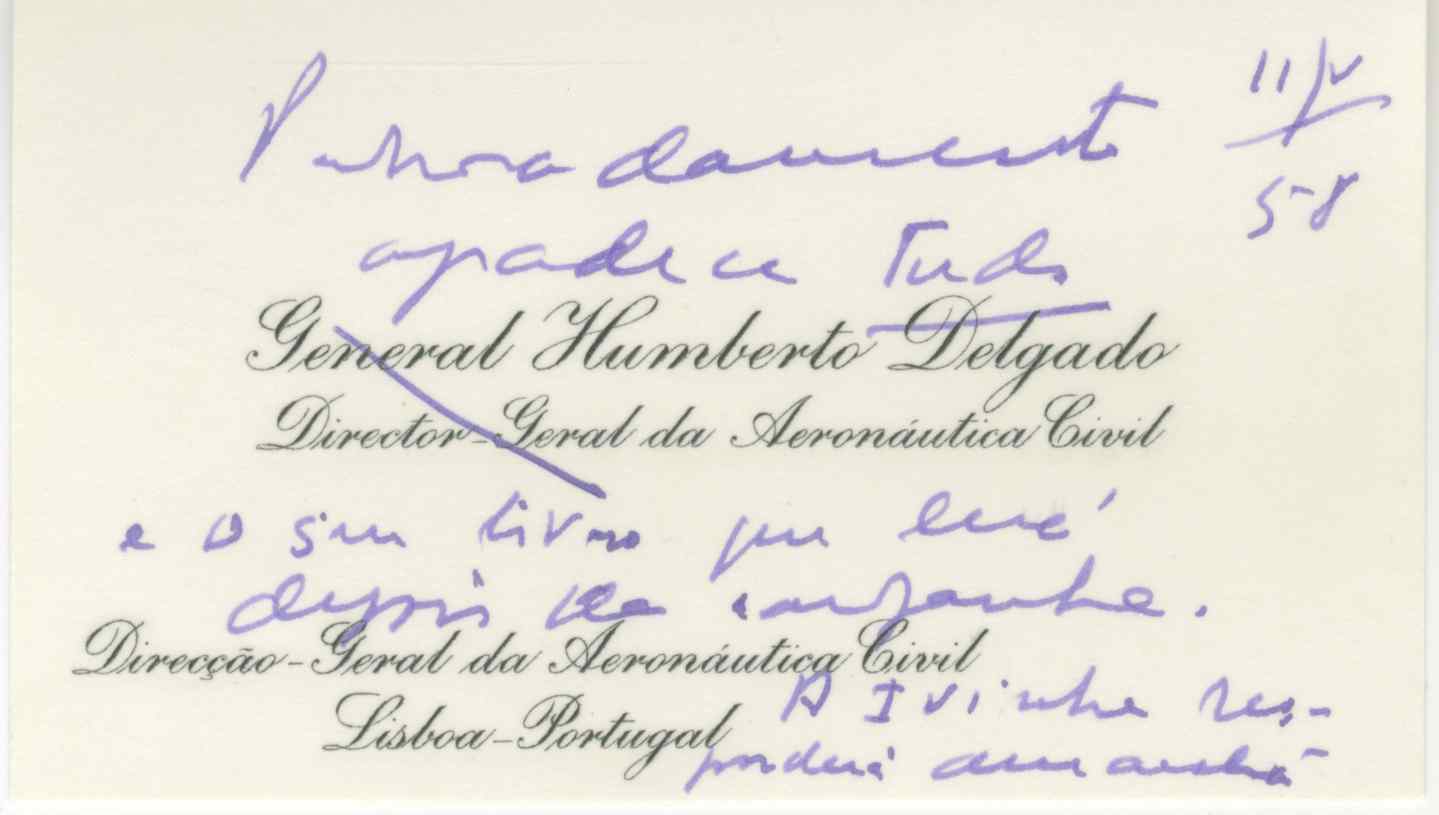 Penhoradamente 11/V
58
agradece tudo
General Humberto Delgado
Director-Geral da Aeronáutica Civil
e o seu livro que lerá
depois da campanha.
Direcção-Geral da Aeronáutica Civil
Lisboa-Portugal
A Ivinha res-
ponderá amanhã